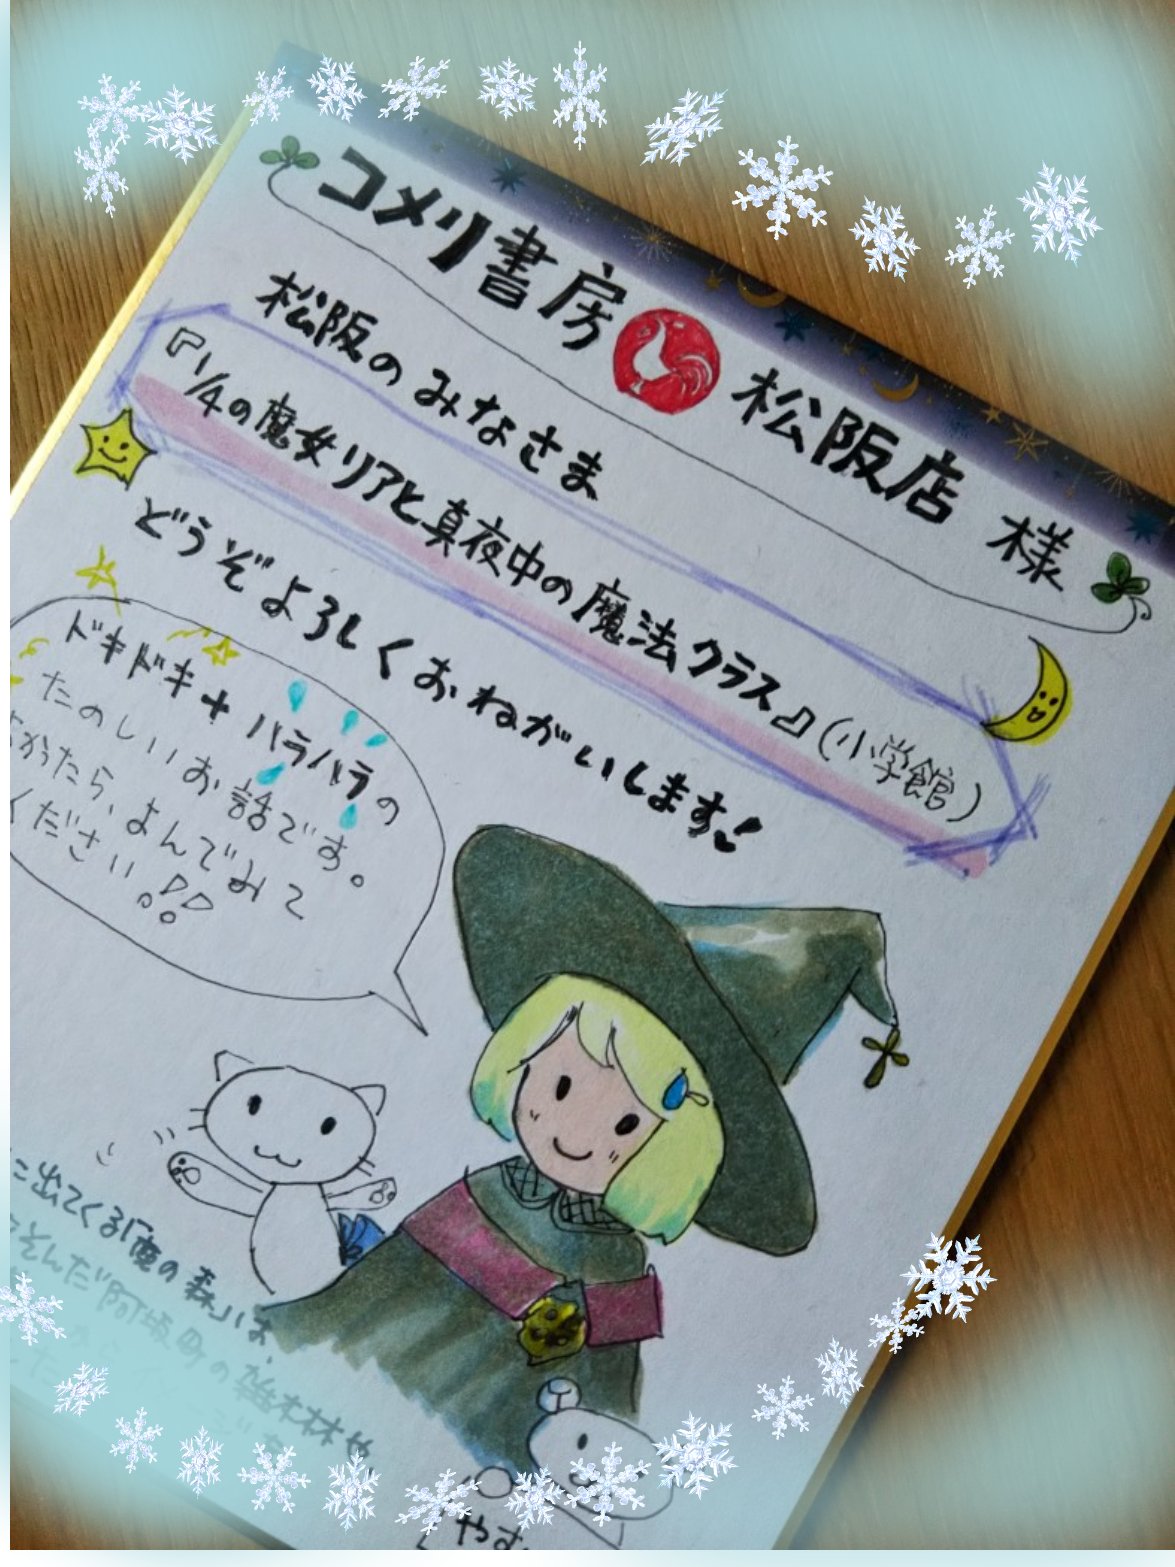 コメリ書房 松阪店 様
松阪の みなさま
『1/4の魔女リアと真夜中の魔法クラス』(小学館)
どうぞよろしくおねがいします!
ドキドキ+ハラハラの
たのしいお話です。
よかったら、よんでみて
ください!!
に出てくる「魔の森」は、
そんだ阿坂町の雑木林や
やす